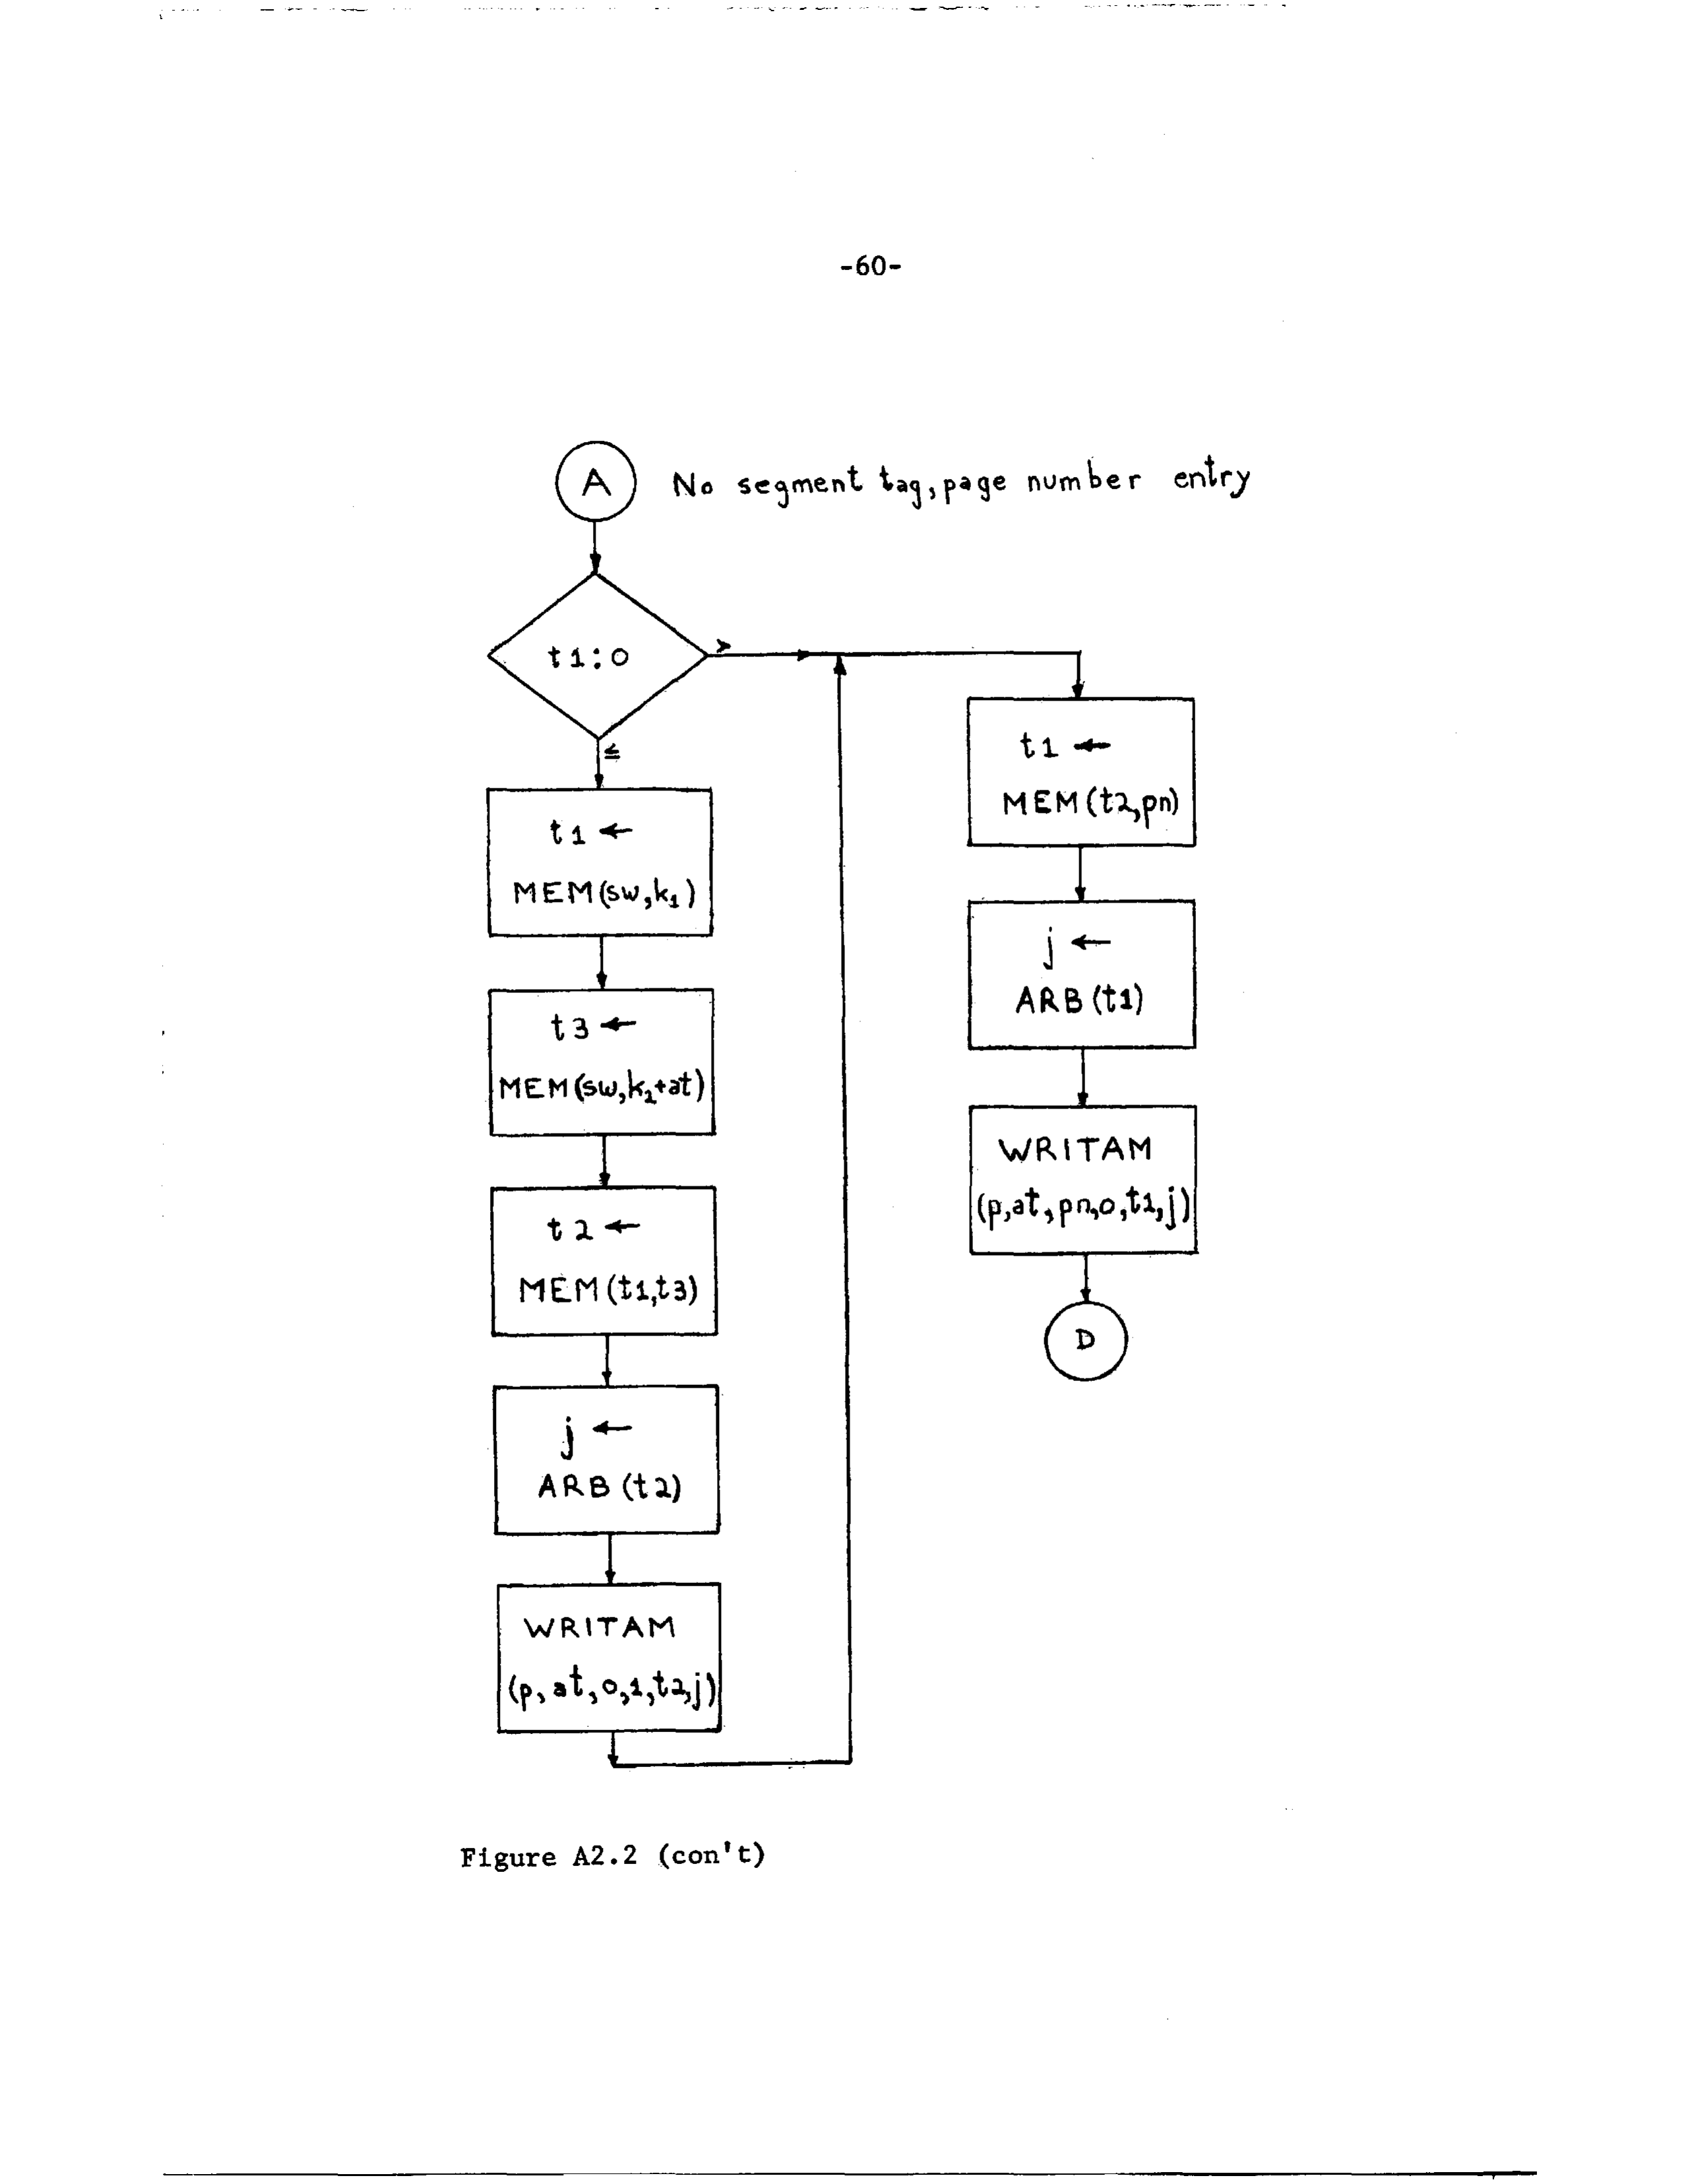 -60-
A No segment tag, page number entry
t1:0
>
≤
t1 ←
MEM(sw,k₁)
t3 ←
MEM(sw,k₂+at)
t2 ←
MEM(t1,t3)
j ←
ARB(t2)
WRITAM
(p,at,0,1,t2,j)
t1 ←
MEM(t2,pn)
j ←
ARB(t1)
WRITAM
(p,at,pn,0,t1,j)
D
Figure A2.2 (con't)